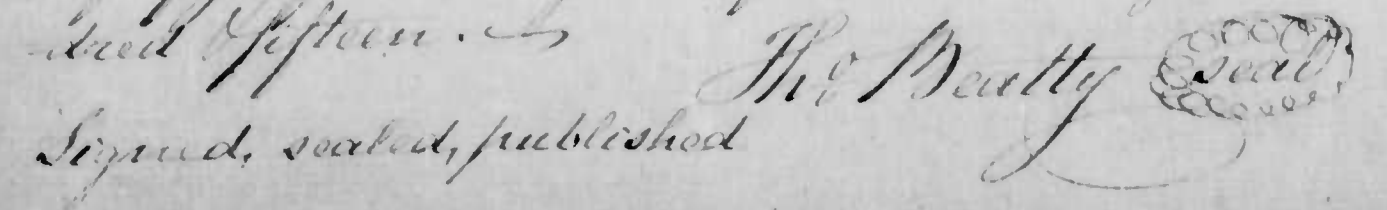 -dred fifteen.
Tho Beatty seal
Signed, sealed, published